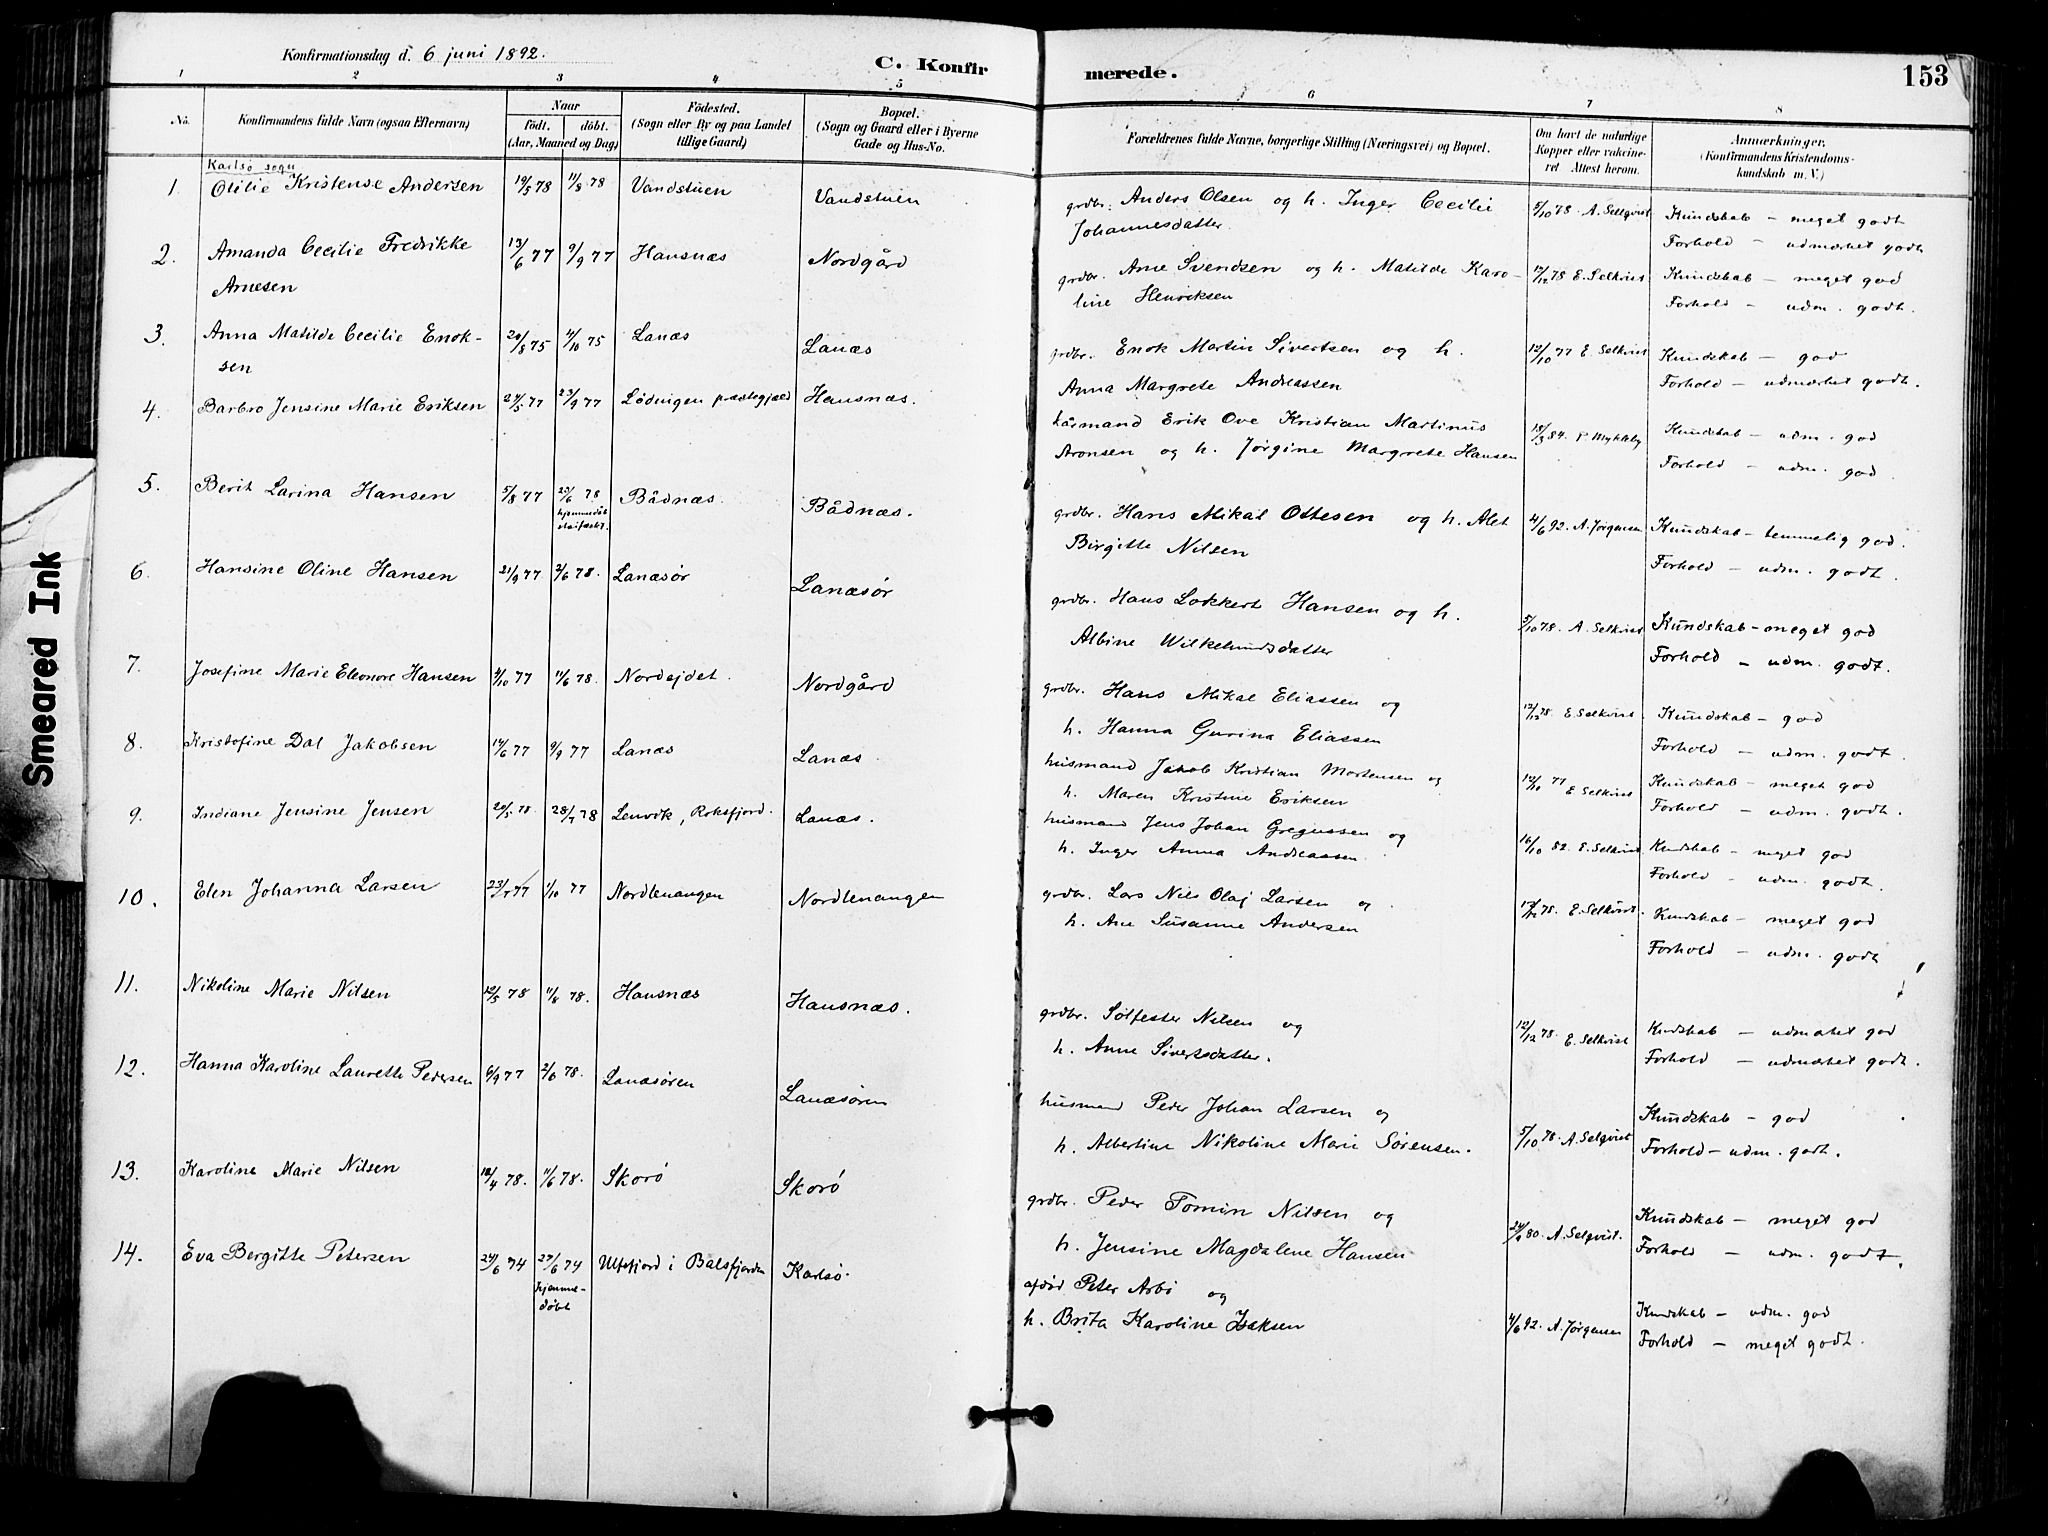 Konfirmationsdag d. 6 juni 1892.
C. Konfirmerede.
153
1 2 3 4 5 6 7 8
No.
Konfirmandens fulde Navn (ogsaa Efternavn)
Naar
födt. döbt.
(Aar, Maaned og Dag)
Födested.
(Sogn eller By og paa Landet
tillige Gaard)
Bopæl.
(Sogn og Gaard eller i Byerne
Gade og Hus-No.
Forældrenes fulde Navne, borgerlige Stilling (Næringsvei) og Bopæl.
Om havt de naturlige
Kopper eller vakcine-
ret Attest herom.
Anmærkninger.
(Konfirmandens Kristendoms-
kundskab m. V.)
Karlsö sogn
1. Otilie Kristense Andersen 19/5 78 11/8 78 Vandstuen Vandstuen
grdbr. Anders Olsen og h. Inger Cecilie
Johannesdatter.
5/10 78. A. Sellqvist
Kundskab – meget godt
Forhold – udmærket godt
2. Amanda Cecilie Fredrikke
Arnesen
13/6 77 9/9 77 Hansnæs Nordgård
grdbr. Arne Svendsen og h. Matilde Karo-
line Henriksen
12/12 78 E. Selkvist
Kundskab – meget god
Forhold – udm. godt.
3. Anna Matilde Cecilie Enok-
sen
20/8 75 4/10 75 Lanæs Lanæs
grdbr. Enok Martin Sivertsen og h.
Anna Margrete Andreassen
12/10 77 E. Selkvist
Kundskab – god
Forhold – udmærket godt.
4. Barbro Jensine Marie Eriksen 24/5 77 23/9 77 Lödingen præstegjæld Hansnæs.
håsmand Erik Ove Kristian Martinus
Aronsen og h. Jørgine Margrete Hansen
18/3 84. P. Mykleby
Kundskab – udm. god
Forhold – udm. god
5. Berit Larina Hansen 5/8 77 23/6 78 Bådnæs Bådnæs.
hjemmedöbt
stadfæstet.
grdbr. Hans Mikal Ottesen og h. Alet
Birgitte Nilsen
4/6 92. A. Jørgensen
Kundskab – temmelig god.
Forhold – udm. godt.
6. Hansine Oline Hansen 21/9 77 2/6 78. Lanæsør Lanæsør
grdbr. Hans Lokkert Hansen og h.
Albine Wilkelundsdatter
5/10 78. A. Selkvist
Kundskab – meget god
Forhold – udm. godt.
7. Josefine Marie Eleonore Hansen 4/10 77 11/6 78. Nordejdet. Nordgård
grdbr. Hans Mikal Eliassen og
h. Hanna Gurina Eliassen
12/12 78. E. Selkvist.
Kundskab – god
Forhold – udm. godt.
8. Kristofine Dal Jakobsen 14/6 77 9/9 77 Lanæs Lanæs
husmand Jakob Kristian Mortensen og
h. Maren Kristine Eriksen
12/10 77 E Selkvist
Kundskab – meget god
Forhold – udm. godt.
9. Indiane Jensine Jensen 20/5 78. 28/7 78 Lenvik, Roksfjord. Lanæs.
husmand Jens Johan Gregussen og
h. Inger Anna Andreassen
16/10 82. E. Selkvist
Kundskab – meget god
Forhold – udm. godt.
10. Elen Johanna Larsen 23/7 77 1/10 77 Nordlenangen Nordlenangen
grdbr. Lars Nils Olaj Larsen og
h. Ane Susanne Andersen
12/12 78. E. Selkvist.
Kundskab – meget god
Forhold – udm. godt
11. Nikoline Marie Nilsen 12/5 78 11/8 78. Hansnæs Hansnæs.
grdbr. Sölfester Nilsen og
h. Anne Sivertsdatter.
12/12 78. E. Selkvist
Kundskab – udmærket god
Forhold – udmærket godt.
12. Hanna Karoline Laurette Pedersen 6/9 77 2/6 78. Lanæsören Lanæsören
husmand Peder Johan Larsen og
h. Albertine Nikoline Marie Sørensen.
5/10 78. A. Selqvist
Kundskab – god
Forhold – udm. godt.
13. Karoline Marie Nilsen 18/4 78. 11/6 78. Skorø Skorø
grdbr. Peder Tomin Nilsen og
h. Jensine Magdalene Hansen
24/9 80. A. Selqvist.
Kundskab – meget god
Forhold – udm. godt.
14. Eva Bergitte Petersen 24/6 74 27/6 74 Ulfsfjord i Balsfjorden Karlsö.
hjemme-
döbt
afdöd Peter Arbö og
h. Brita Karoline Isaksen
4/6 92. A. Jørgensen
Kundskab – udm. god
Forhold – meget godt.
Smeared Ink